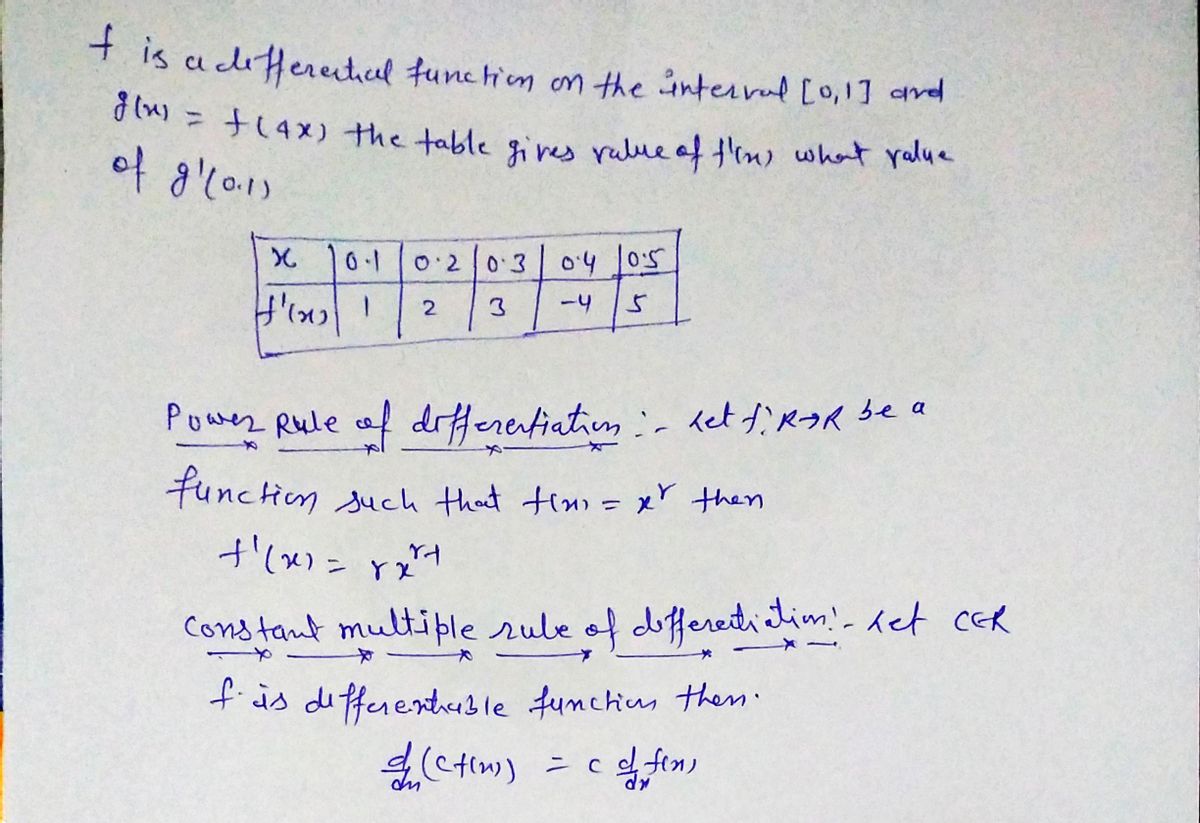 f is a differential function on the interval [0,1] and
g(x) = f(4x) the table gives value of f'(x) what value
of g'(0.1)
x 0.1 0.2 0.3 0.4 0.5
f'(x) 1 2 3 -4 5
Power Rule of differentiation :- let f: R→R be a
function such that f(x) = x^r then
f'(x) = r x^{r-1}
Constant multiple rule of differentiation:- let C∈R
f is differentiable function then.
d/dx (c f(x)) = c d/dx f(x)